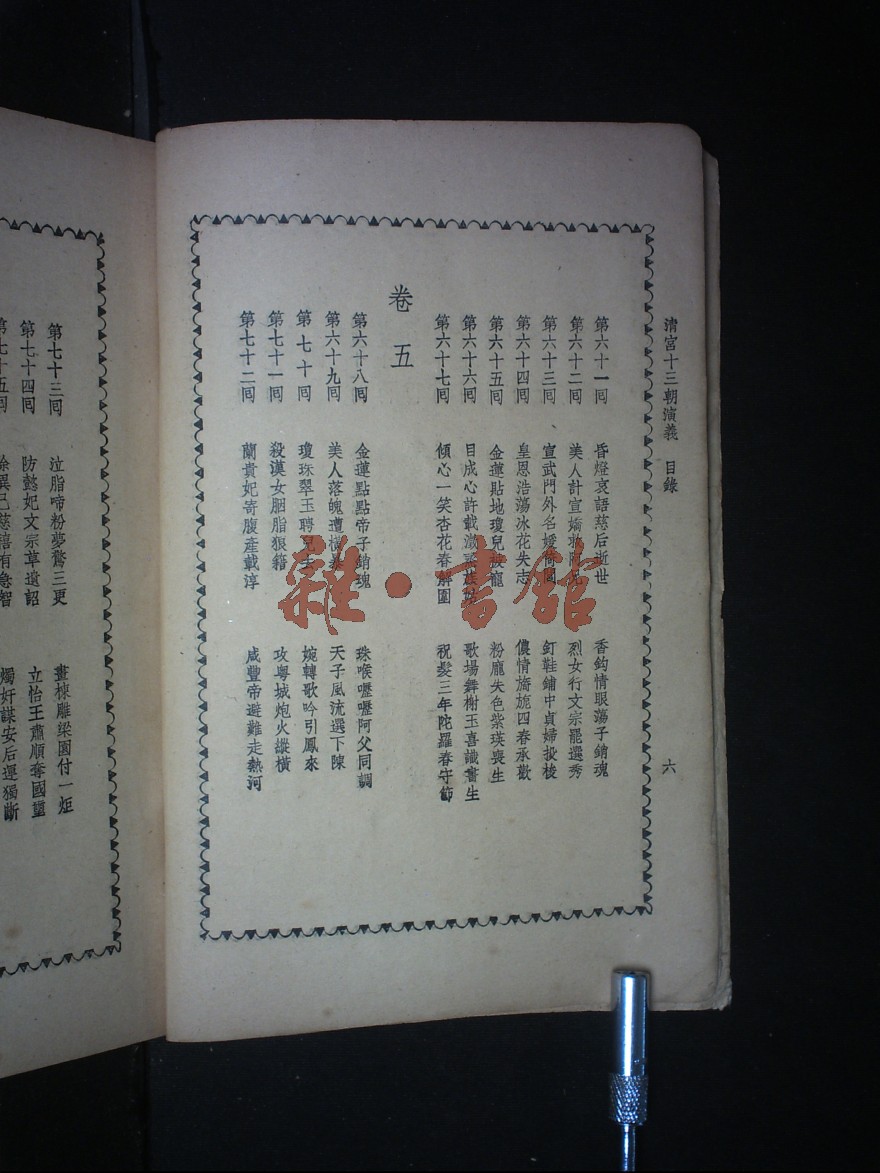 清宮十三朝演義 目錄
六
第六十一囘 昏燈哀語慈后逝世 香鈎情眼蕩子銷魂
第六十二囘 美人計宣嬌救阿兄 烈女行文宗罷選秀
第六十三囘 宣武門外名媛倚閭 釘鞋鋪中貞婦投梭
第六十四囘 皇恩浩蕩冰花失志 儂情旖旎四春承歡
第六十五囘 金蓮貼地瓊兒被寵 粉龐失色紫瑛喪生
第六十六囘 目成心許載澂 歌場舞榭玉喜識書生
第六十七囘 傾心一笑杏花春解圍 祝髮三年陀羅春守節
卷五
第六十八囘 金蓮點點帝子銷魂 珠喉嚦嚦阿父同調
第六十九囘 美人落魄遭橫暴 天子風流選下陳
第七十囘 瓊珠翠玉聘兒去 婉轉歌吟引鳳來
第七十一囘 殺漢女胭脂狼籍 攻粵城炮火縱橫
第七十二囘 蘭貴妃寄腹產載淳 咸豐帝避難走熱河
第七十三囘 泣脂啼粉夢驚三更 畫棟雕梁園付一炬
第七十四囘 防懿妃文宗草遺詔 立怡王肅順奪國璽
第七十五囘 除異己慈禧有急智 燭奸謀安后運獨斷
雜·書舘